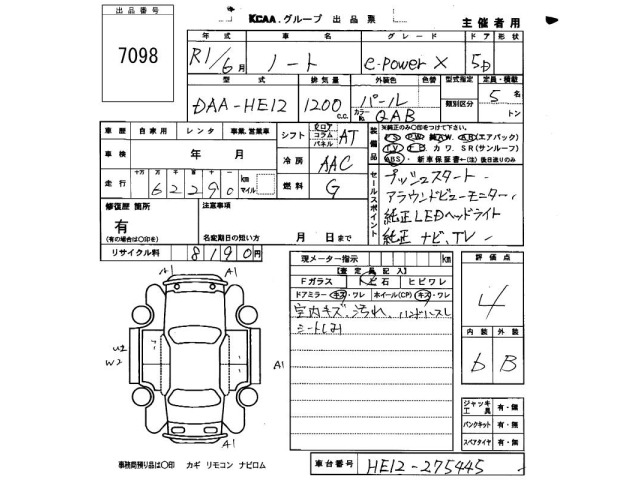 出品番号
7098
KCAA. グループ 出品票
主催者用
年式 車名 グレード ドア 形状
R1/6月 ノート e-power X 5D
型式 排気量 外装色 色替 型式指定 定員・積載
DAA-HE12 1200 c.c. パール 類別区分 5 名
カラーNo. QAB トン
車歴 自家用 レンタ 事業,営業車 シフト フロア コラム パネル AT
装備品 ※純正のみ〇印をつけて下さい。
PS. PW. 純AW. AB(エアバック)
TV. ナビ. カワ. SR(サンルーフ)
ABS. 新車保証書←(注)後日送りのみ
車検 年 月 冷房 AAC
走行 十万 万 千 百 十 62290 km マイル 燃料 G
セールスポイント
プッシュスタート
アラウンドビューモニター
純正LEDヘッドライト
純正ナビ,TV
修復歴 箇所 注意事項
有
(有の場合は〇印を) 名変期日の短い方 月 日まで
リサイクル料 8190円
現メーター指示 km
【査定員記入】
Fガラス トビ石 ヒビワレ
ドアミラー キズ・ワレ ホイール(CP) キズ・ワレ
室内キズ.汚れ.ハンドルスレ
シートしみ
評価点
4
内装 外装
b B
A1 A1
U1
W2
A1
A1
ジャッキ 工具 有・無
パンクキット 有・無
スペアタイヤ 有・無
事務局預り品は〇印 カギ リモコン ナビロム
車台番号 HE12-275445